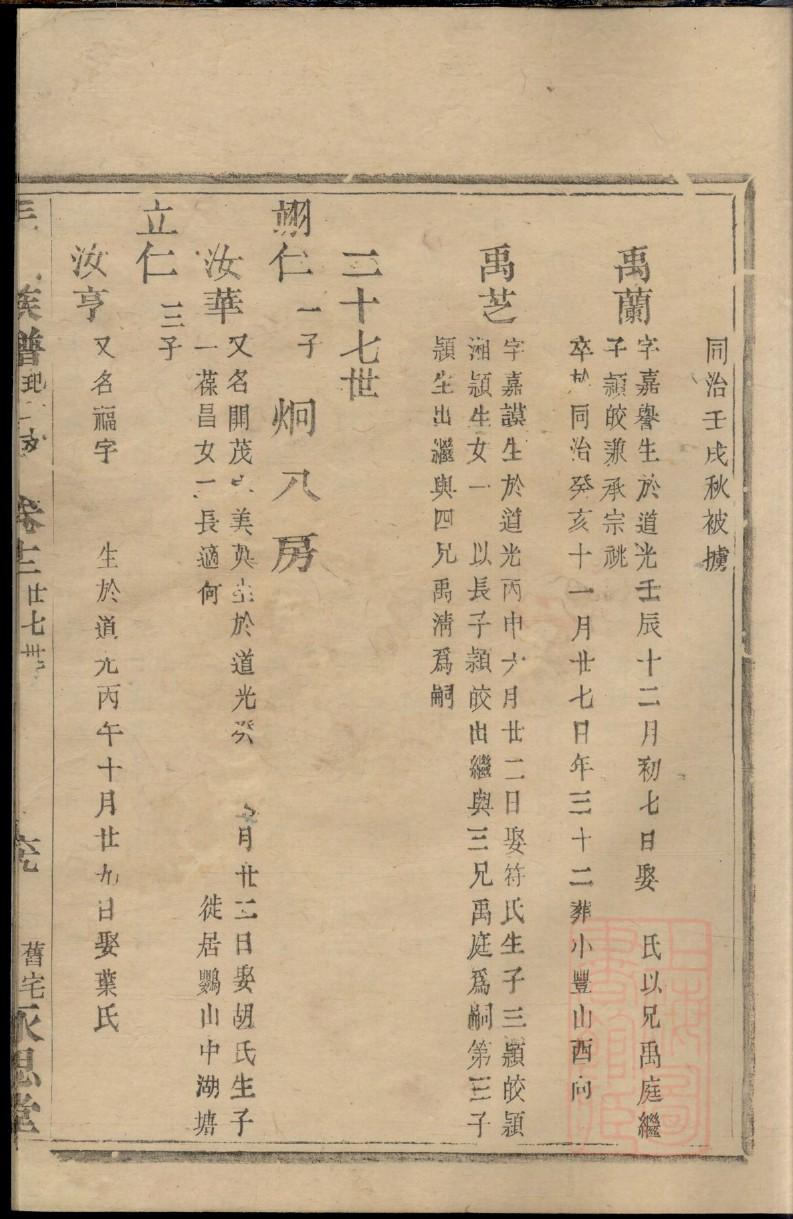 同治壬戌秋被擄
禹蘭
字嘉譽生於道光壬辰十二月初七日娶 氏以兄禹庭繼
子頴皎兼承宗祧
卒於同治癸亥十一月廿七日年三十二葬小豐山酉向
禹芝
字嘉謨生於道光丙申六月廿二日娶符氏生子三頴皎頴
湘頴生女一 以長子頴皎出繼與三兄禹庭爲嗣第三子
頴生出繼與四兄禹淸爲嗣
二十七世
翊仁 一子 炯八房
汝華
又名開茂 美 生於道光癸 月廿二日娶胡氏生子
一葆昌女一長適何 徙居鸚山中湖塘
立仁 三子
汝亨
又名福字 生於道光丙午十月廿九日娶葉氏
族譜 卷 廿七世 舊宅永思堂